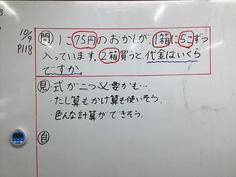 10/9
P118
問 1こ75円のおかしが1箱に5こずつ
入っています。2箱買うと代金はいくら
ですか。
見 式が二つ必要かも…
・たし算もかけ算も使いそう。
・色んな計算ができそう。
自